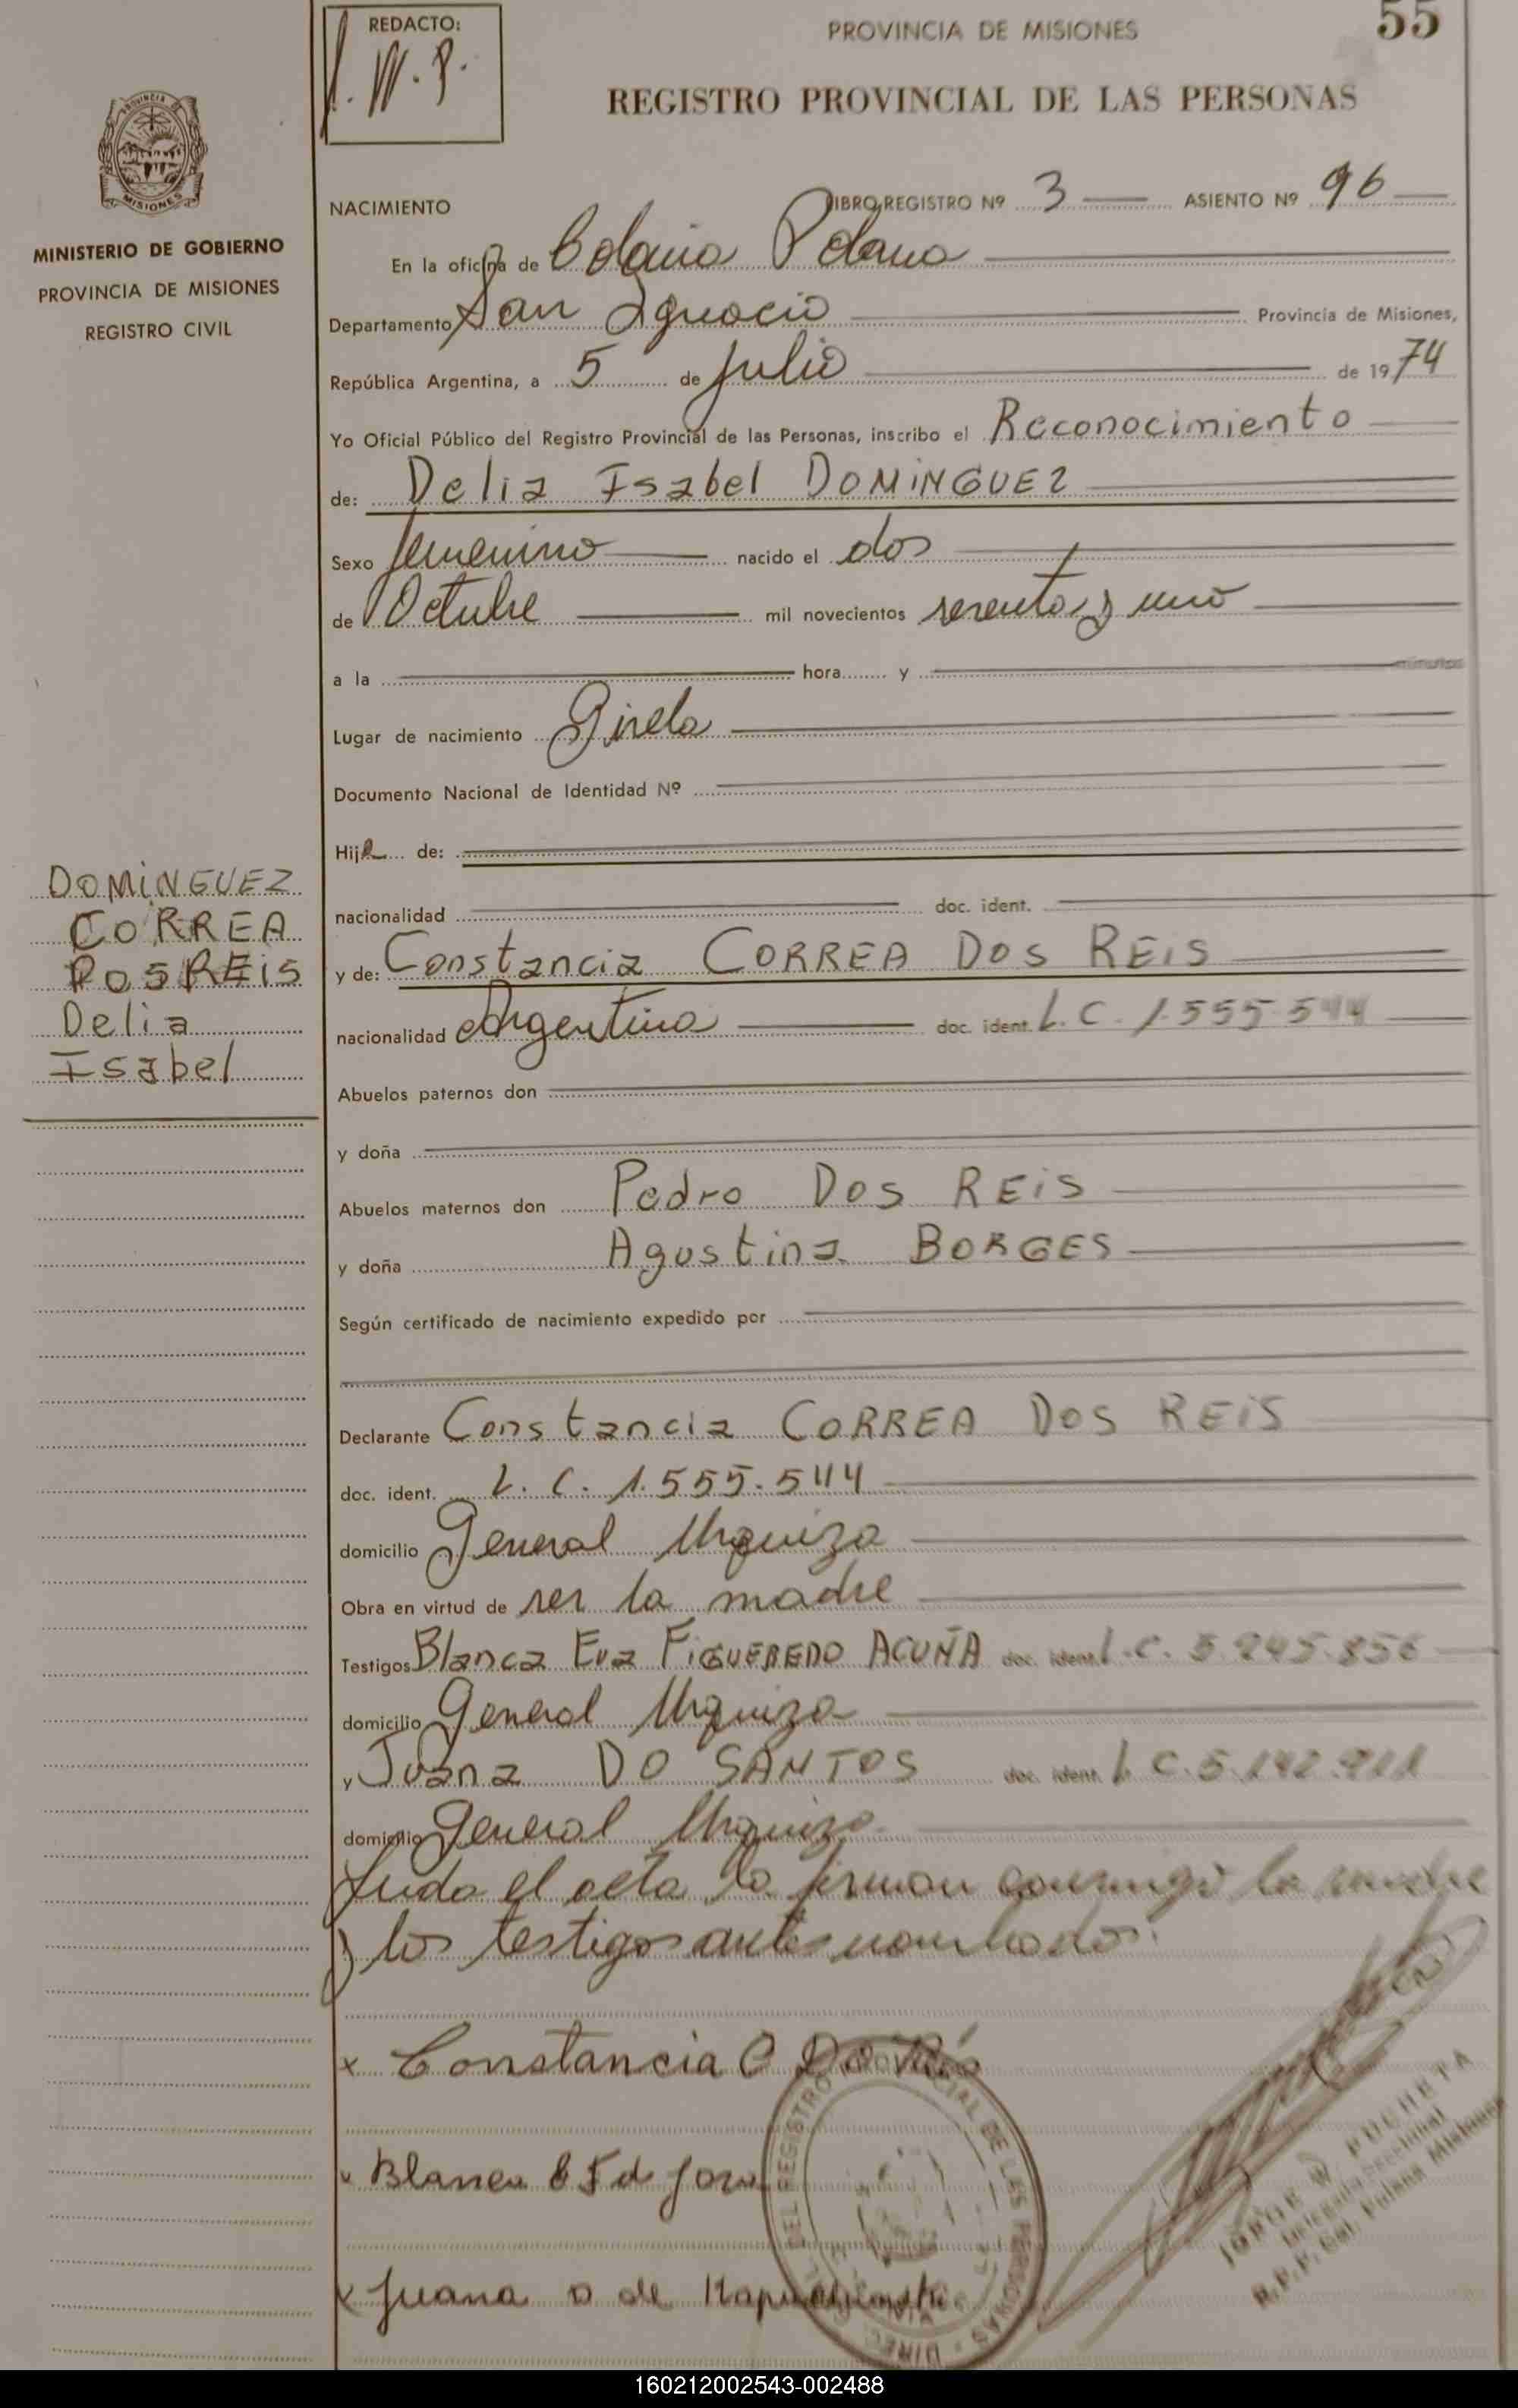 REDACTO:
PROVINCIA DE MISIONES
55
J. W. P.
REGISTRO PROVINCIAL DE LAS PERSONAS
PROVINCIA DE
MISIONES
MINISTERIO DE GOBIERNO
PROVINCIA DE MISIONES
REGISTRO CIVIL
NACIMIENTO LIBRO REGISTRO Nº 3 ASIENTO Nº 96
En la oficina de Colonia Polana
Departamento San Ignacio Provincia de Misiones,
República Argentina, a 5 de Julio de 1974
Yo Oficial Público del Registro Provincial de las Personas, inscribo el Reconocimiento
de: Delia Isabel DOMINGUEZ
Sexo femenino nacido el dos
de Octubre mil novecientos setenta y uno
a la hora y minutos
Lugar de nacimiento Gisela
Documento Nacional de Identidad Nº
Hija de:
nacionalidad doc. ident.
DOMINGUEZ
CORREA
DOS REIS
Delia
Isabel
y de: Constancia CORREA DOS REIS
nacionalidad Argentina doc. ident. L. C. 1.555.544
Abuelos paternos don
y doña
Abuelos maternos don Pedro DOS REIS
y doña Agustina BORGES
Según certificado de nacimiento expedido por
Declarante Constancia CORREA DOS REIS
doc. ident. L. C. 1.555.544
domicilio General Urquiza
Obra en virtud de ser la madre
Testigos Blanca Eva FIGUEREDO ACUÑA doc. ident. L.C. 5.245.856
domicilio General Urquiza
y Juana DO SANTOS doc. ident. L C. 5.142.911
domicilio General Urquiza
Leida el acta la firman conmigo la madre
y los testigos antes nombrados.
x Constancia C Do
x Blanca E F d
x Juana D de
DEL REGISTRO PROVINCIAL DE LAS PERSONAS
JORGE W. POCHETA
Delegado Seccional
R.P.P. Col. Polana Misiones
160212002543-002488